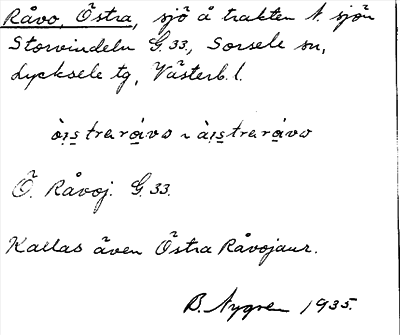 Råvo, Östra, sjö å trakten N. sjön
Storvindeln G.33, Sorsele sn,
Lycksele tg, Västerb. l.
òi̯straråvo ~ ài̯straråvo
Ö. Råvoj. G.33.
Kallas även Östra Råvojaur.
B. Nygren 1935.